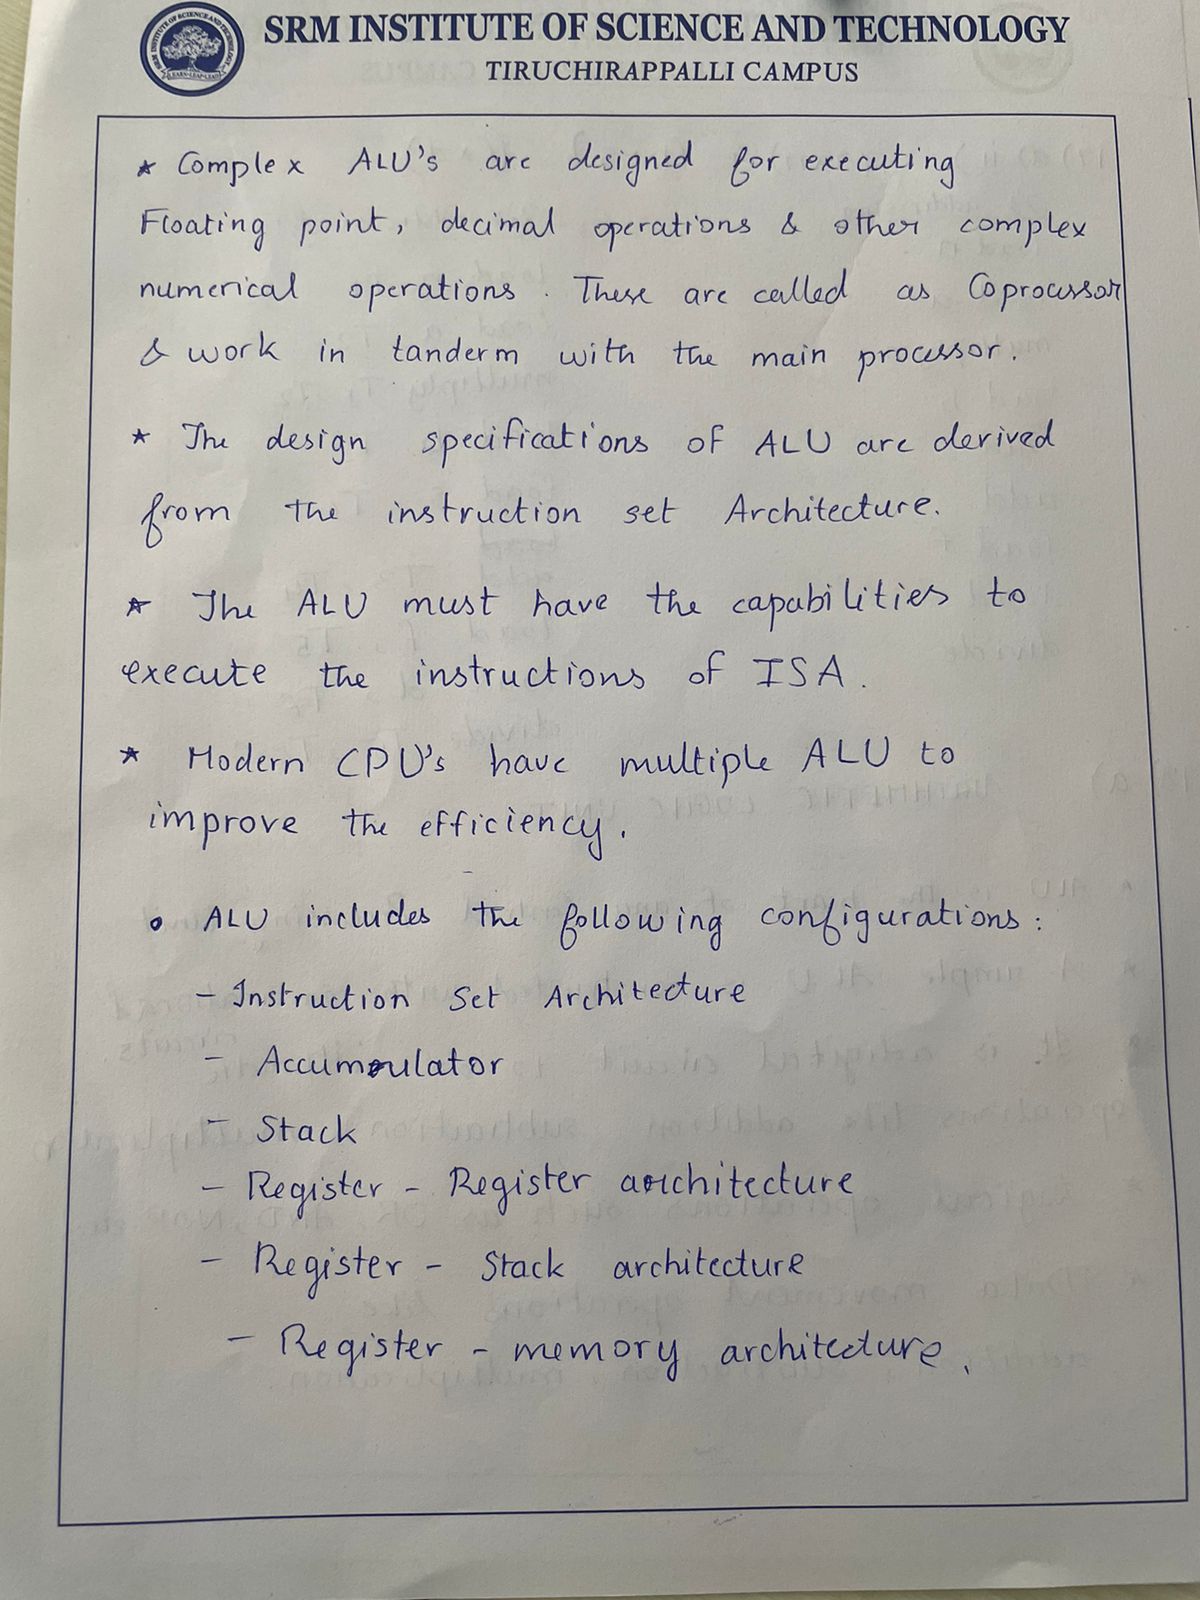 SRM INSTITUTE OF SCIENCE AND TECHNOLOGY
TIRUCHIRAPPALLI CAMPUS
* Complex ALU's are designed for executing
Floating point, decimal operations & other complex
numerical operations. These are called as Coprocessor
& work in tanderm with the main processor.
* The design specifications of ALU are derived
from the instruction set Architecture.
* The ALU must have the capabilities to
execute the instructions of ISA.
* Modern CPU's have multiple ALU to
improve the efficiency.
• ALU includes the following configurations:
- Instruction Set Architecture
- Accumulator
- Stack
- Register - Register architecture
- Register - Stack architecture
- Register - memory architecture.